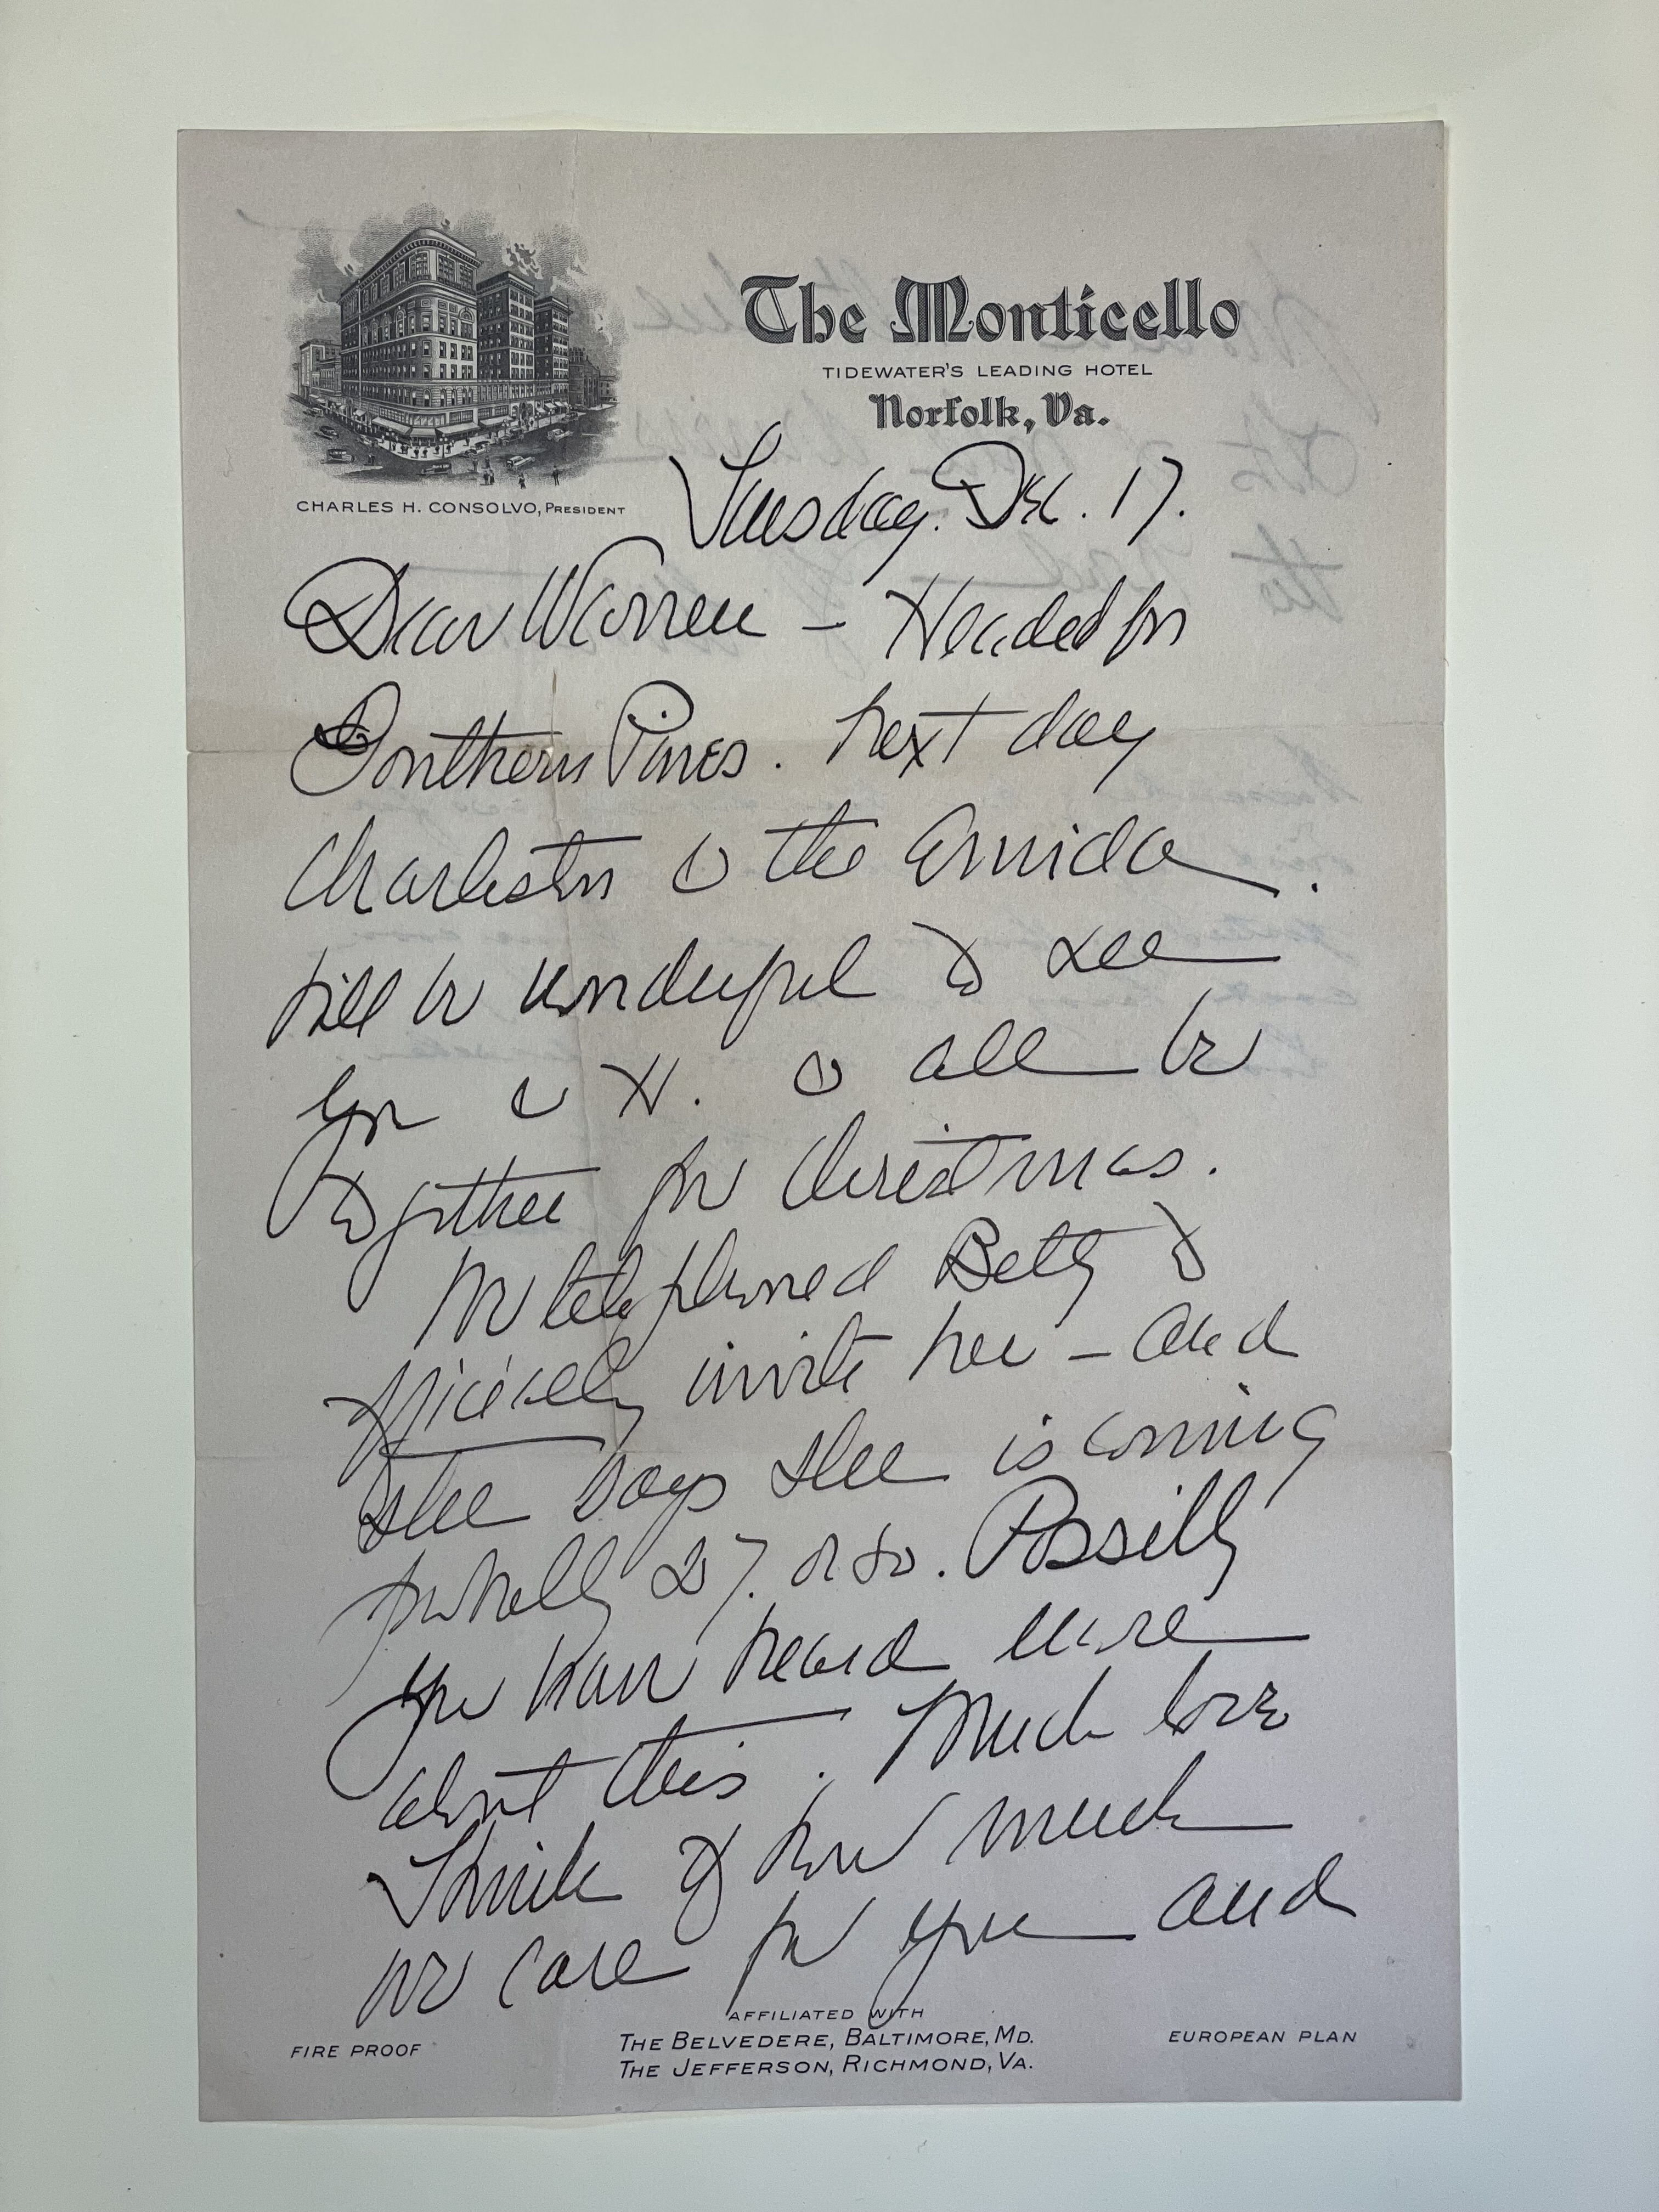 The Monticello
TIDEWATER'S LEADING HOTEL
Norfolk, Va.
CHARLES H. CONSOLVO, PRESIDENT
Tuesday. Dec. 17.
Dear Warren — Headed for
Southern Pines. Next day
Charleston & the
Will be wonderful to see
you & H. & all be
together for Christmas.
We telephoned Betty to
invite her — and
she says she is coming
probably 27. or so. Possibly
you have heard more
about this. Much love
Think of how much
we care for you and
AFFILIATED WITH
FIRE PROOF THE BELVEDERE, BALTIMORE, MD. EUROPEAN PLAN
THE JEFFERSON, RICHMOND, VA.